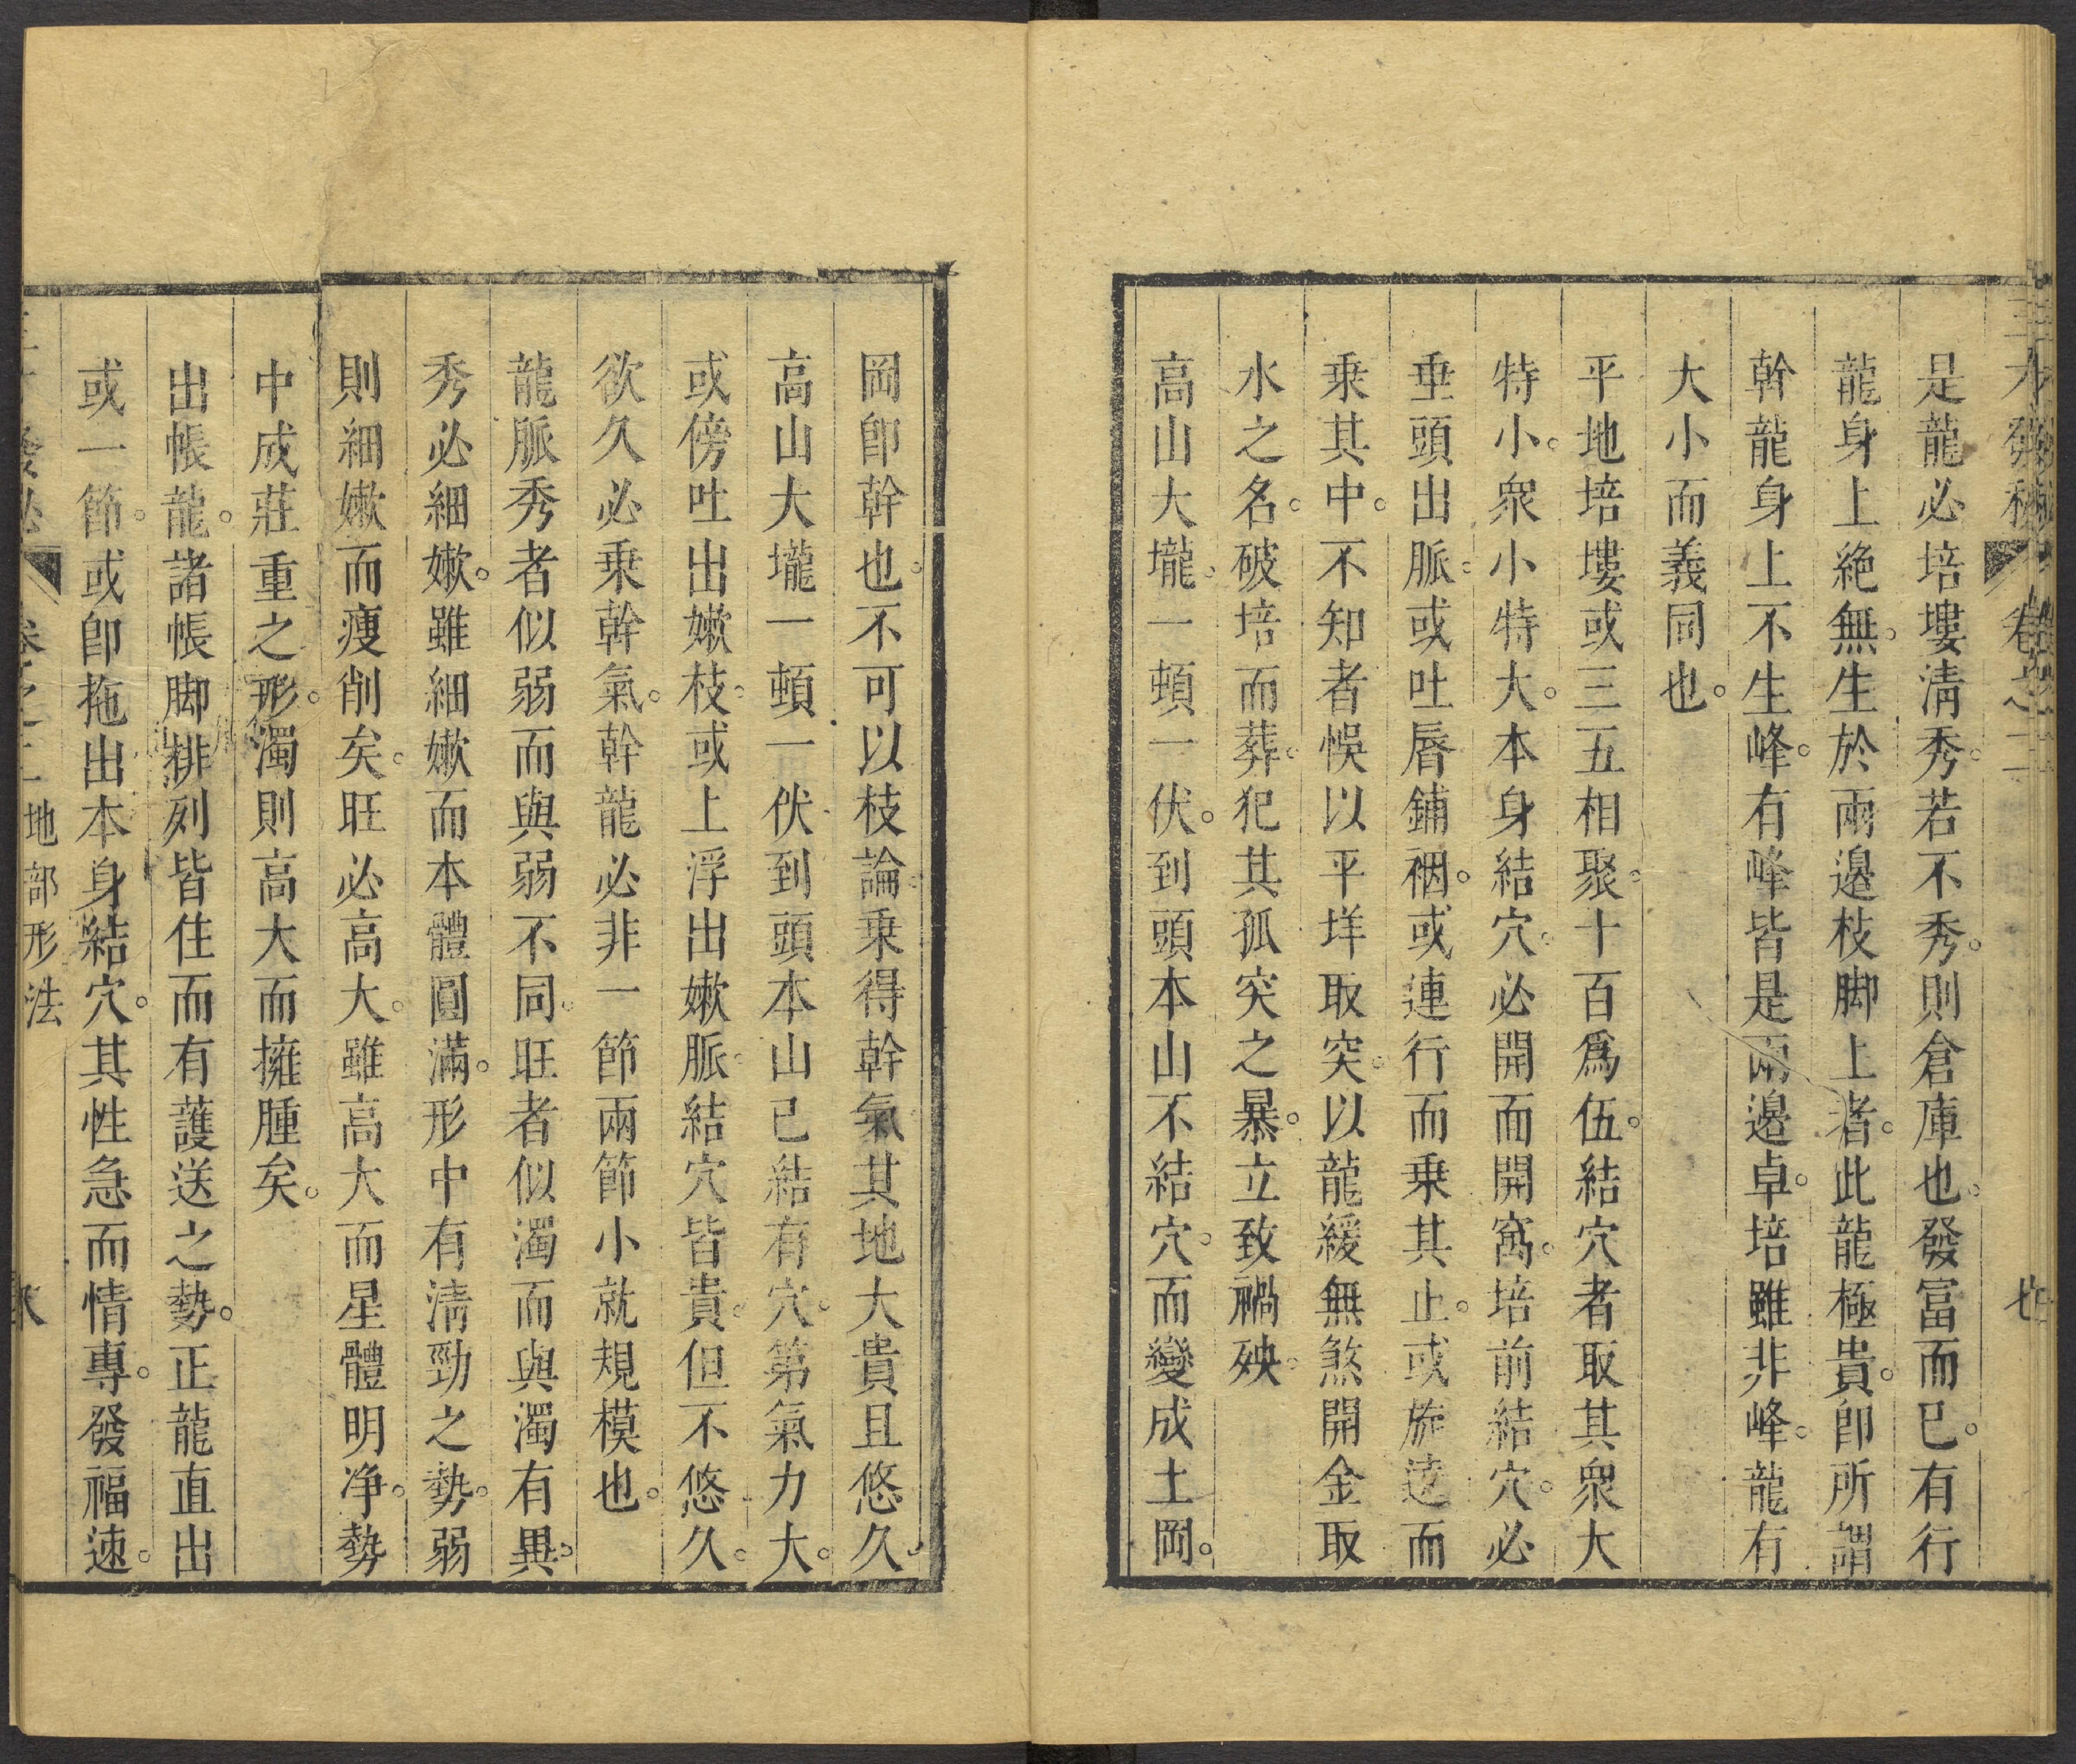 是龍必培塿淸秀。若不秀。則倉庫也。發富而已。有行
龍身上絶無。生於兩邉枝脚上者。此龍極貴。卽所謂
幹龍身上不生峰。有峰皆是兩邉卓。培雖非峰。龍有
大小而義同也。
平地培塿或三五相聚。十百爲伍。結穴者取其衆大
特小。衆小特大。本身結穴。必開面開窩。培前結穴。必
垂頭出脈。或吐唇鋪裀。或連行而乗其止。或旋遶而
乗其中。不知者悞以平垟取突。以龍緩無煞開金取
水之名。破培而葬。犯其孤突之暴。立致禍殃。
高山大壠。一頓一伏。到頭本山不結穴。而變成土岡。
岡卽幹也。不可以枝論。乗得幹氣。其地大貴且悠久。
高山大壠一頓一伏到頭本山已結有穴。第氣力大。
或傍吐出嫰枝。或上浮出嫰脈。結穴皆貴。但不悠久。
欲久必乗幹氣。幹龍必非一節兩節小就規模也。
龍脈秀者似弱而與弱不同。旺者似濁而與濁有異。
秀必細嫰。雖細嫰而本體圓滿。形中有淸勁之勢。弱
則細嫰而瘦削矣。旺必高大。雖高大而星體明净。勢
中成莊重之形。濁則高大而擁腫矣。
出帳龍。諸帳脚排列皆住而有護送之勢。正龍直出
或一節。或卽拖出本身結穴。其性急而情專。發福速。
卷之二 地部形法